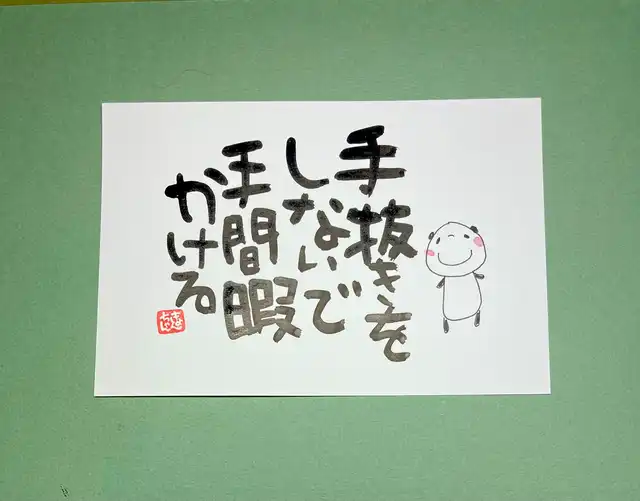 手抜きを
しないで
手間暇
かける